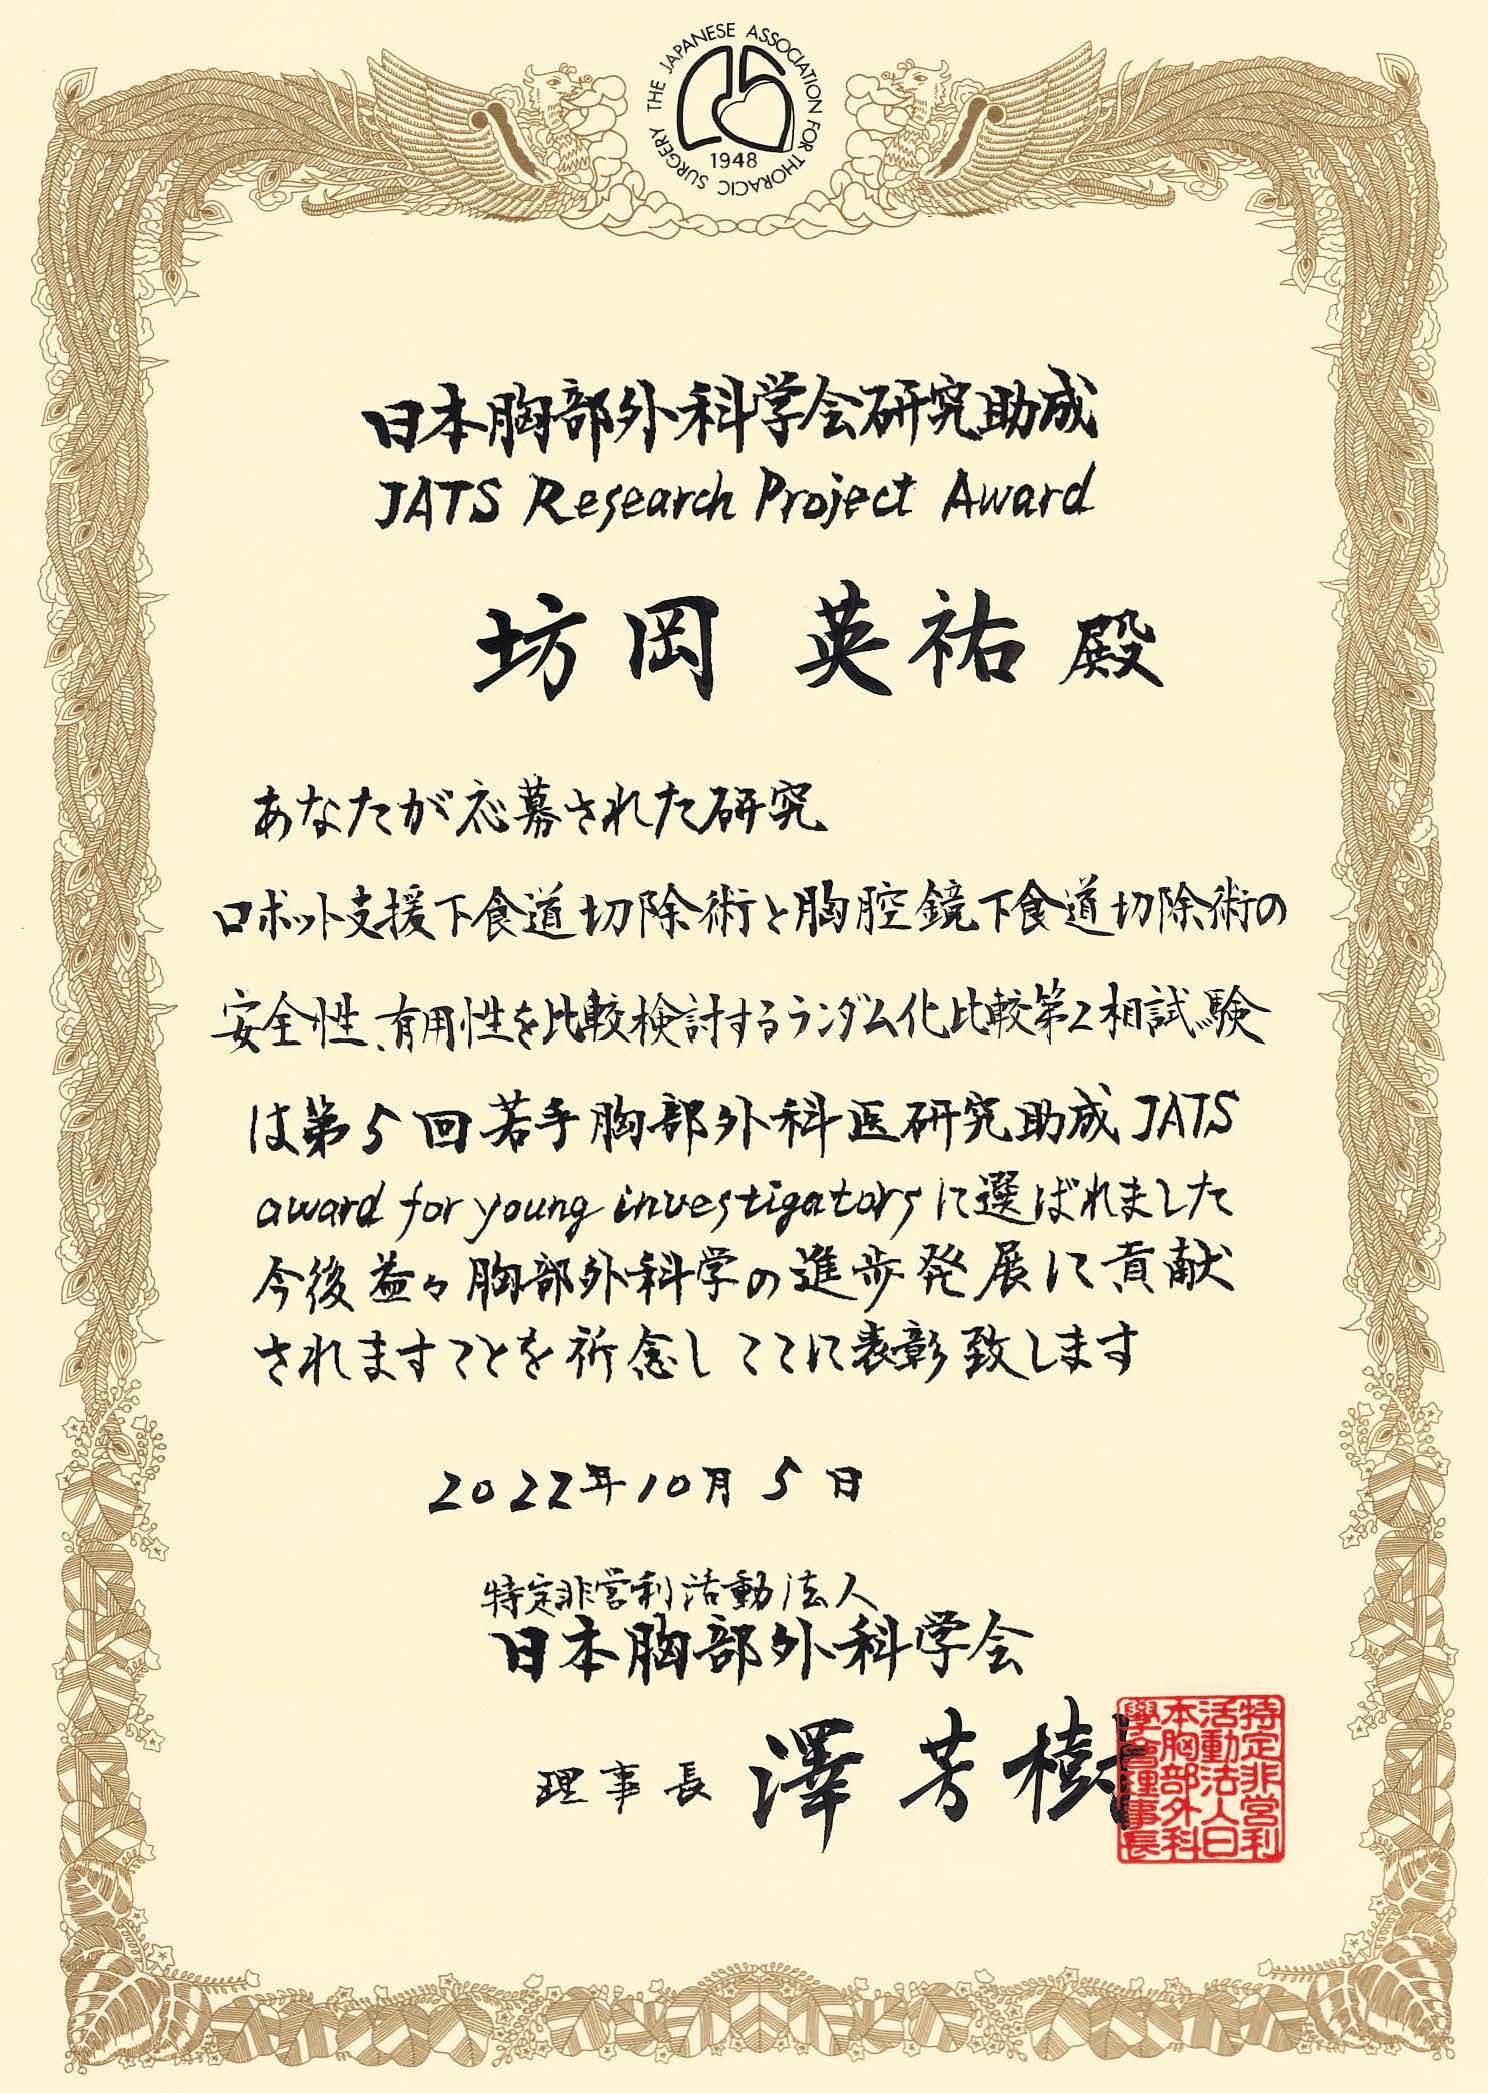 THE JAPANESE ASSOCIATION FOR THORACIC SURGERY
1948
日本胸部外科学会研究助成
JATS Research Project Award
坊岡 英祐 殿
あなたが応募された研究
ロボット支援下食道切除術と胸腔鏡下食道切除術の
安全性、有用性を比較検討するランダム化比較第2相試験
は第5回若手胸部外科医研究助成JATS
award for young investigatorsに選ばれました
今後益々胸部外科学の進歩発展に貢献
されますことを祈念しここに表彰致します
2022年10月5日
特定非営利活動法人
日本胸部外科学会
理事長 澤 芳樹
特定非営利
活動法人日
本胸部外科
學会理事長